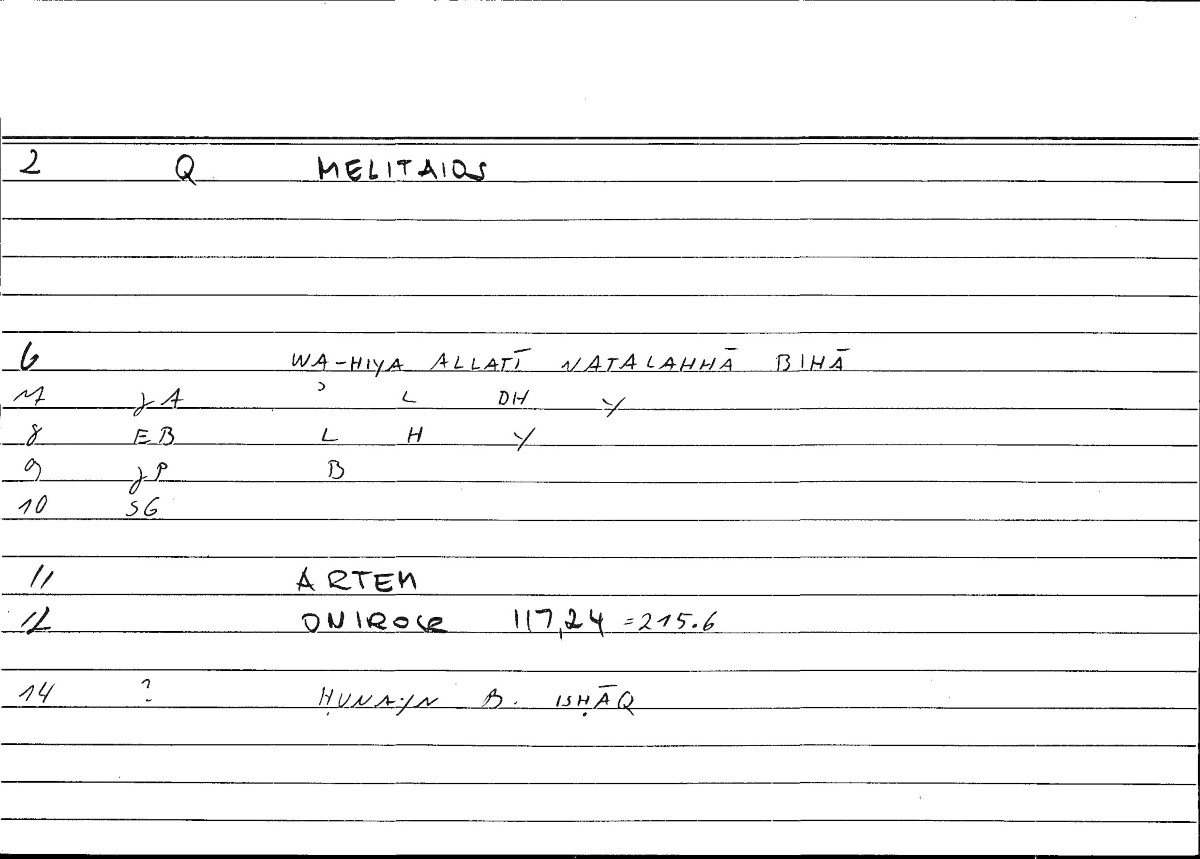 2 Q MELITAIOS
6 WA-HIYA ALLATĪ NATALAHHĀ BIHĀ
7 JA ʾ L DH Y
8 EB L H Y
9 JP B
10 SG
11 ARTEM
12 ONIROCR 117,24 =215.6
14 ? ḤUNAYN B. ISḤĀQ